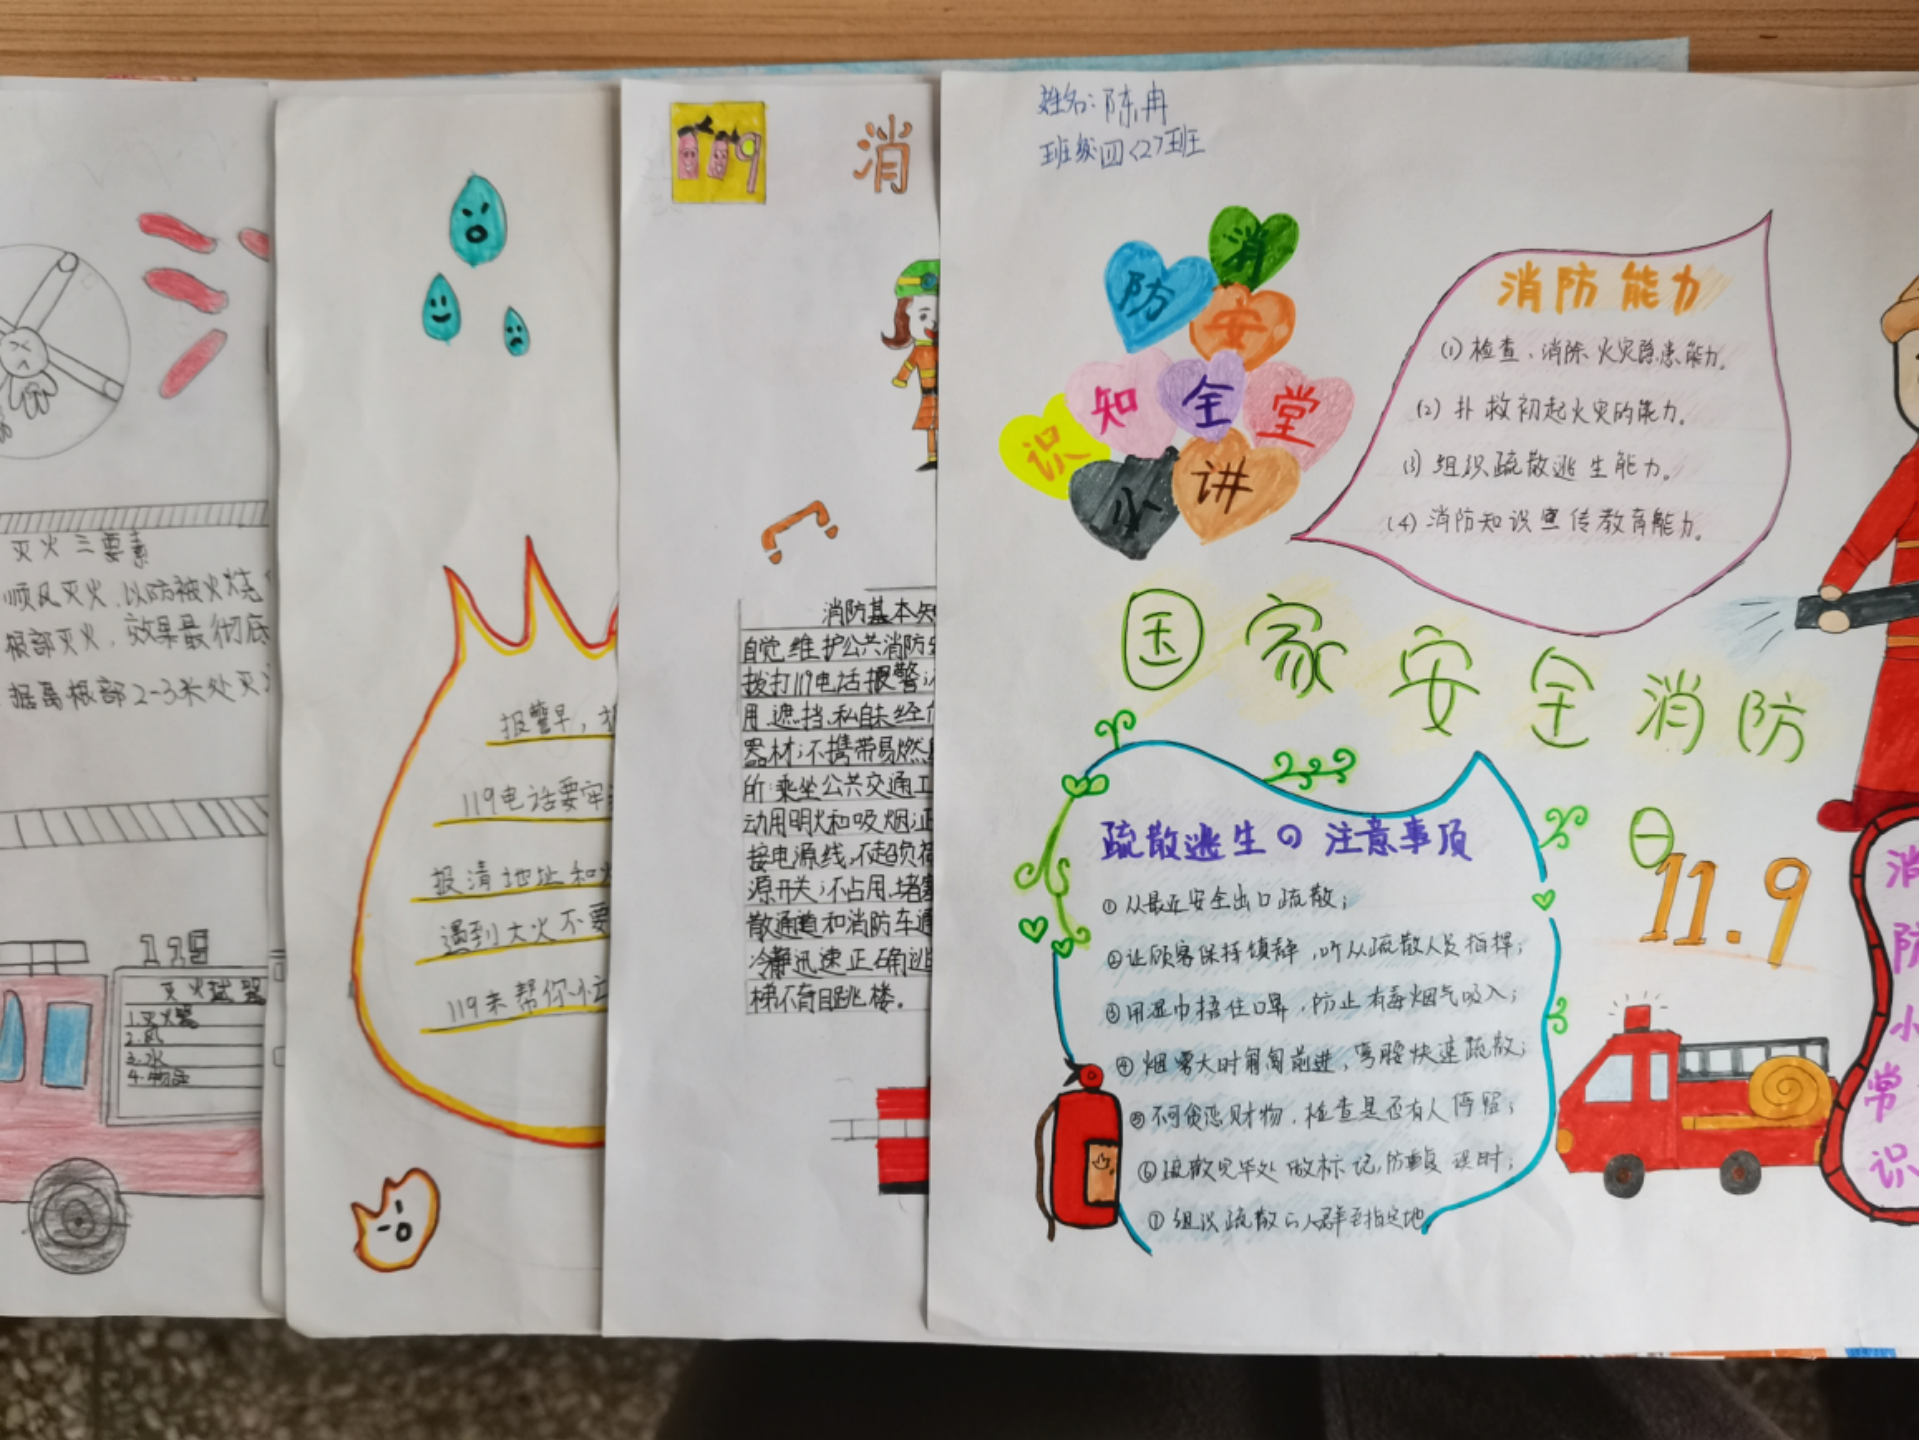 灭火三要素
顺风灭火，以防被火烧
根部灭火，效果最彻底
据离根部2-3米处灭
119
灭火器
1.灭火器
2.风
3.水
报警早，
119电话要牢
报清地址和火
遇到大火不要
119来帮你忙
119
消
消防基本知
自觉维护公共消防安
拨打119电话报警；
用、遮挡、私自未经
器材；不携带易燃
所、乘坐公共交通工
动用明火和吸烟；
接电源线，不超负荷
源开关；不占用、堵塞
散通道和消防车通
冷静迅速正确逃
梯不盲目跳楼。
姓名：陈冉
班级四<2>班
消
防
安
知
全
堂
识
小
讲
消防能力
(1)检查、消除火灾隐患能力。
(2)扑救初起火灾的能力。
(3)组织疏散逃生能力。
(4)消防知识宣传教育能力。
国家安全消防
日
11.9
疏散逃生の注意事项
①从最近安全出口疏散；
②让顾客保持镇静，听从疏散人员指挥；
③用湿巾捂住口鼻，防止有毒烟气吸入；
④烟雾大时匍匐前进，弯腰快速疏散；
⑤不可贪恋财物，检查是否有人停留；
⑥疏散完毕处做标记，防重复误时；
⑦组织疏散の人群至指定地。
消
防
小
常
识